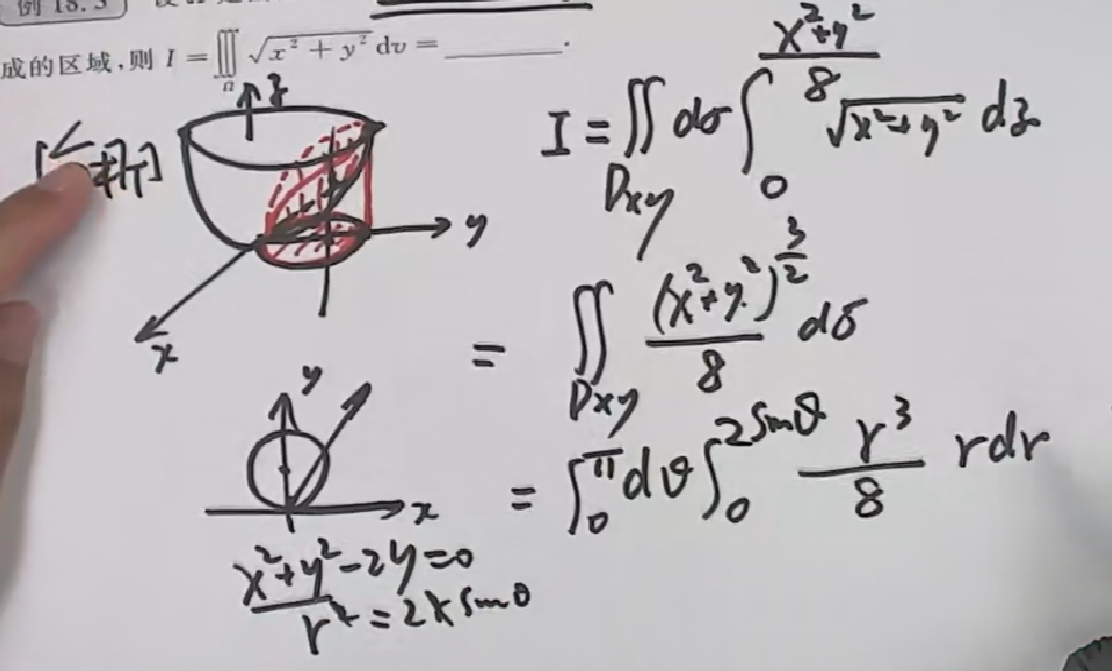 例 18.3
成的区域,则 I = ∭Ω √(x² + y²) dv = ______.
z
[分析]
y
x
I = ∬Dxy dσ ∫₀^((x²+y²)/8) √(x²+y²) dz
= ∬Dxy (x²+y²)^(3/2)/8 dσ
y
x
= ∫₀^π dθ ∫₀^(2sinθ) r³/8 rdr
x²+y²-2y=0
r²=2r sinθ